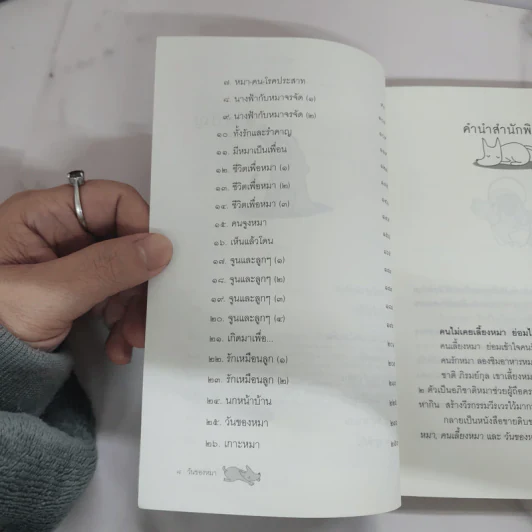 ๗. หมา-คน-โรคประสาท
๘. นางฟ้ากับหมาจรจัด (๑)
๙. นางฟ้ากับหมาจรจัด (๒)
๑๐. ทั้งรักและรำคาญ
๑๑. มีหมาเป็นเพื่อน
๑๒. ชีวิตเพื่อหมา (๑)
๑๓. ชีวิตเพื่อหมา (๒)
๑๔. ชีวิตเพื่อหมา (๓)
๑๕. คนจูงหมา
๑๖. เห็นแล้วโดน
๑๗. จูนและลูกๆ (๑)
๑๘. จูนและลูกๆ (๒)
๑๙. จูนและลูกๆ (๓)
๒๐. จูนและลูกๆ (๔)
๒๑. เกิดมาเพื่อ...
๒๒. รักเหมือนลูก (๑)
๒๓. รักเหมือนลูก (๒)
๒๔. นกหน้าบ้าน
๒๕. วันของหมา
๒๖. เกาะหมา
วันของหมา
คำนำสำนักพิ
คนไม่เคยเลี้ยงหมา ย่อมไ
คนเลี้ยงหมา ย่อมเข้าใจคน
คนรักหมา ลองชิมอาหารหม
ชาติ ภิรมย์กุล เขาเลี้ยงหม
๒ ตัวเป็นอภิชาติหมาช่วยผู้ถือคร
ห่ากิน สร้างวีรกรรมวีรเวรไว้มาก
กลายเป็นหนังสือขายดิบข
หมา, คนเลี้ยงหมา และ วันของห